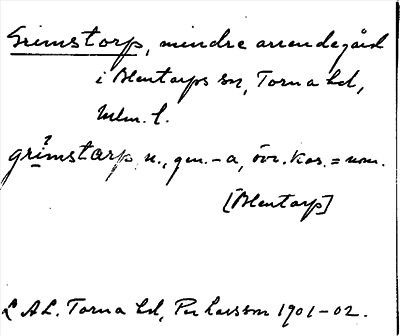 Grimstorp, mindre arrendegård
i Blentarps sn, Torna hd,
Mlm. l.
grimstarp n., gen. -a, övr. kas. = nom.
[Blentarp]
LAL. Torna hd, Per Larsson 1901-02.